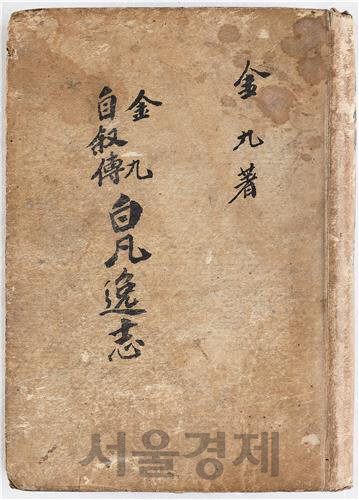 金九著
金九
自叙傳
白凡逸志
서울경제